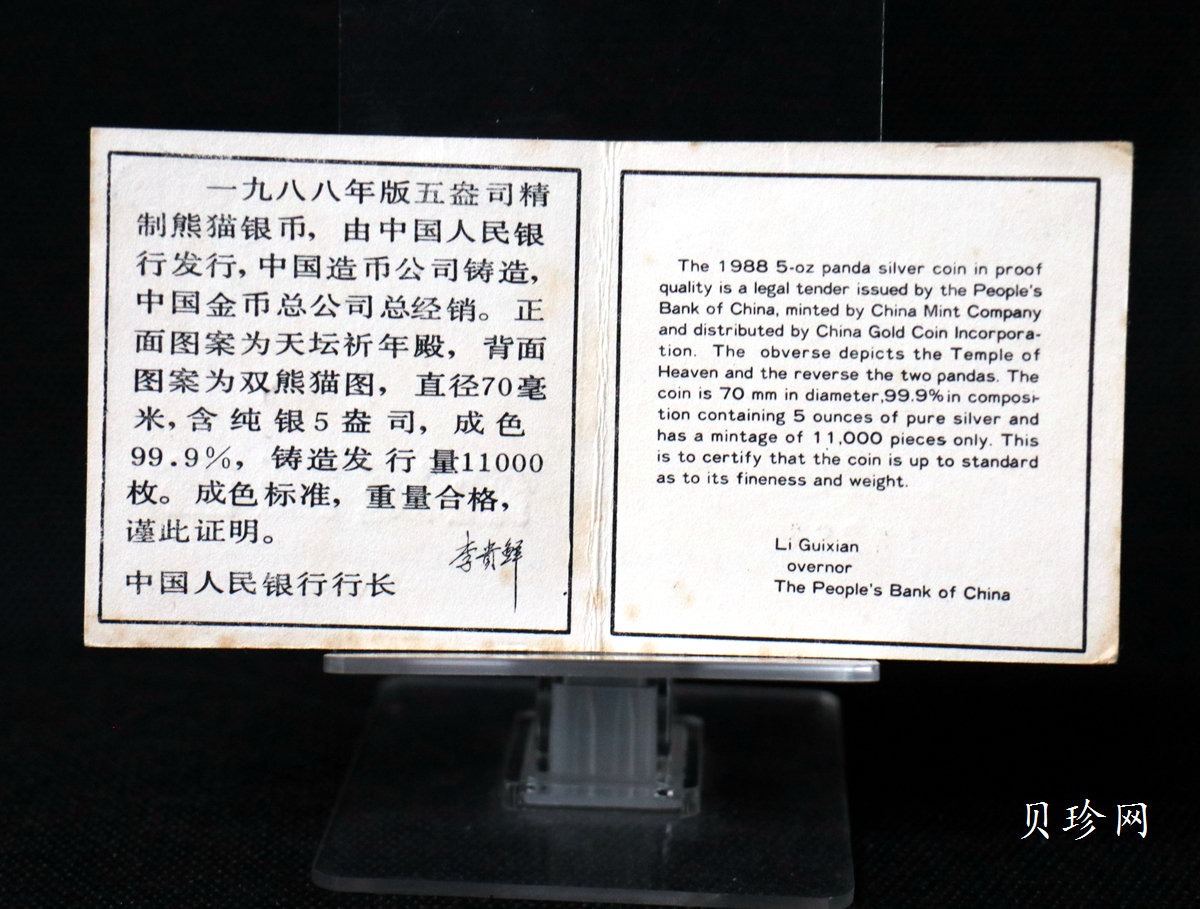 一九八八年版五盎司精
制熊猫银币，由中国人民银
行发行，中国造币公司铸造，
中国金币总公司总经销。正
面图案为天坛祈年殿，背面
图案为双熊猫图，直径70毫
米，含纯银5盎司，成色
99.9%，铸造发行量11000
枚。成色标准，重量合格，
谨此证明。
李贵鲜
中国人民银行行长
The 1988 5-oz panda silver coin in proof
quality is a legal tender issued by the People's
Bank of China, minted by China Mint Company
and distributed by China Gold Coin Incorpora-
tion. The obverse depicts the Temple of
Heaven and the reverse the two pandas. The
coin is 70 mm in diameter,99.9%in composi-
tion containing 5 ounces of pure silver and
has a mintage of 11,000 pieces only. This
is to certify that the coin is up to standard
as to its fineness and weight.
Li Guixian
overnor
The People's Bank of China
贝珍网